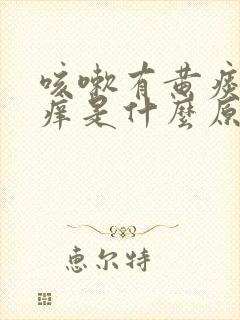 咳嗽有黄痰
痒是什麼原
惠尔特